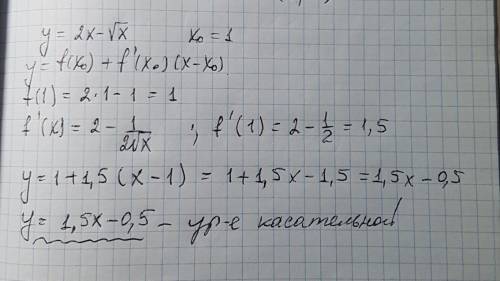 y = 2x - √x    x₀ = 1
y = f(x₀) + f'(x₀)(x - x₀)
f(1) = 2·1 - 1 = 1
f'(x) = 2 - 1/(2√x) ; f'(1) = 2 - 1/2 = 1,5
y = 1 + 1,5(x - 1) = 1 + 1,5x - 1,5 = 1,5x - 0,5
y = 1,5x - 0,5 - ур-е касательной